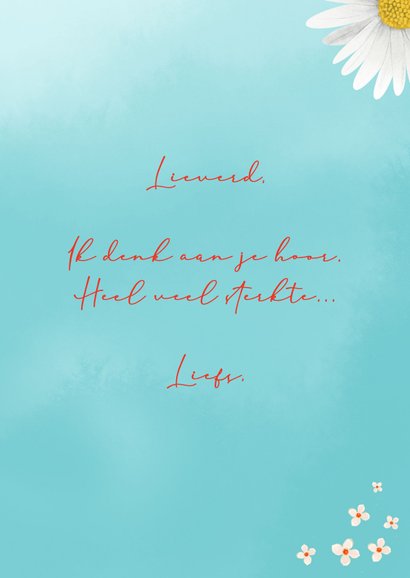 Lieverd,
Ik denk aan je hoor.
Heel veel sterkte...
Liefs,